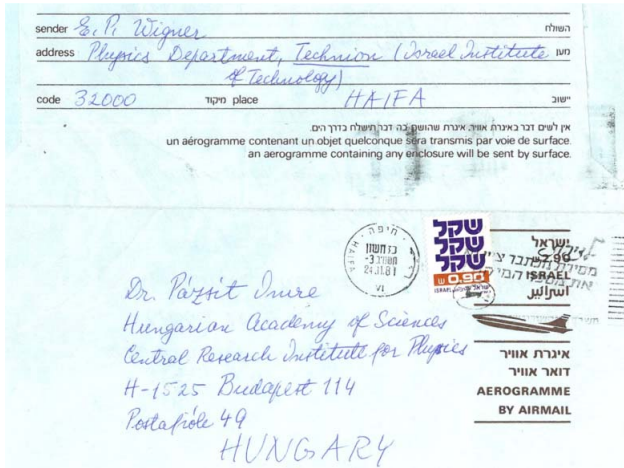 sender E. P. Wigner השולח
address Physics Department, Technion (Israel Institute מען
of Technology)
code 32000 מיקוד place HAIFA יישוב
אין לשים דבר באיגרת אוויר. איגרת שהושם בה דבר תישלח בדרך הים.
un aérogramme contenant un objet quelconque sera transmis par voie de surface.
an aerogramme containing any enclosure will be sent by surface.
חיפה
HAIFA
24.11.81
VI
שקל
שקל
שקל
0.90
ISRAEL
ישראל
2.90
ISRAEL
اسرائيل
איגרת אוויר
דואר אוויר
AEROGRAMME
BY AIRMAIL
Dr. Pázsit Imre
Hungarian Academy of Sciences
Central Research Institute for Physics
H-1525 Budapest 114
Postafióle 49
HUNGARY